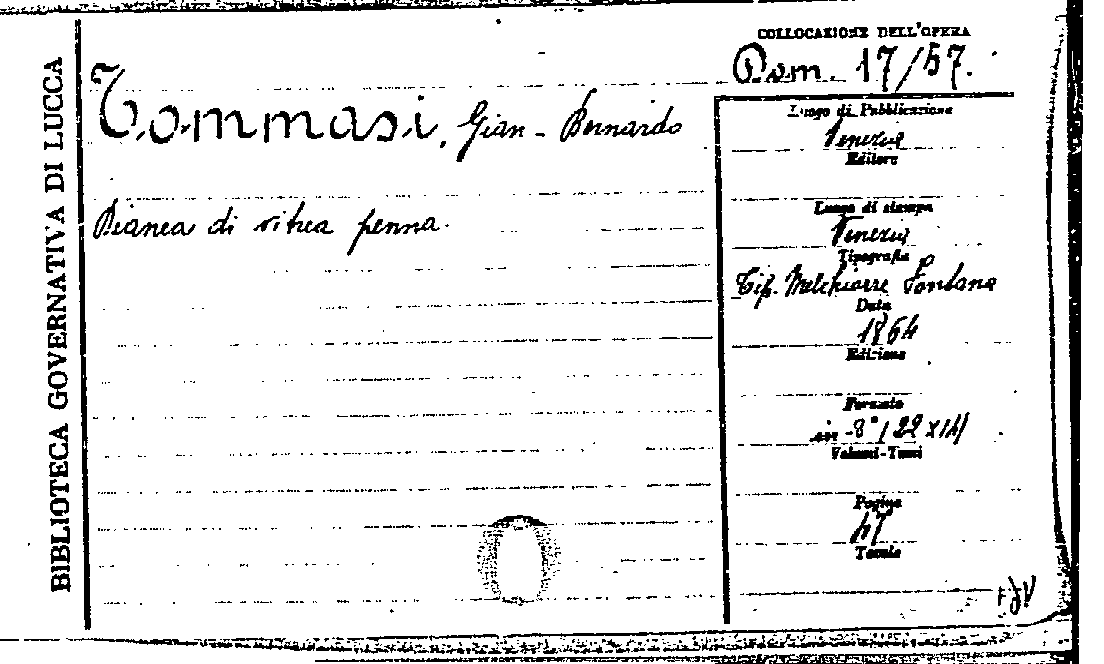 BIBLIOTECA GOVERNATIVA DI LUCCA
COLLOCAZIONE DELL'OPERA
Dom. 17/57.
Tommasi, Gian-Bernardo
di vitrea penna.
Luogo di Pubblicazione
Venezia
Editore
Luogo di stampa
Venezia
Tipografia
Tip. Melchiorre Fontana
Data
1864
Edizione
Formato
in-8° (22x14)
Volumi-Tomi
Pagine
47
Tavole